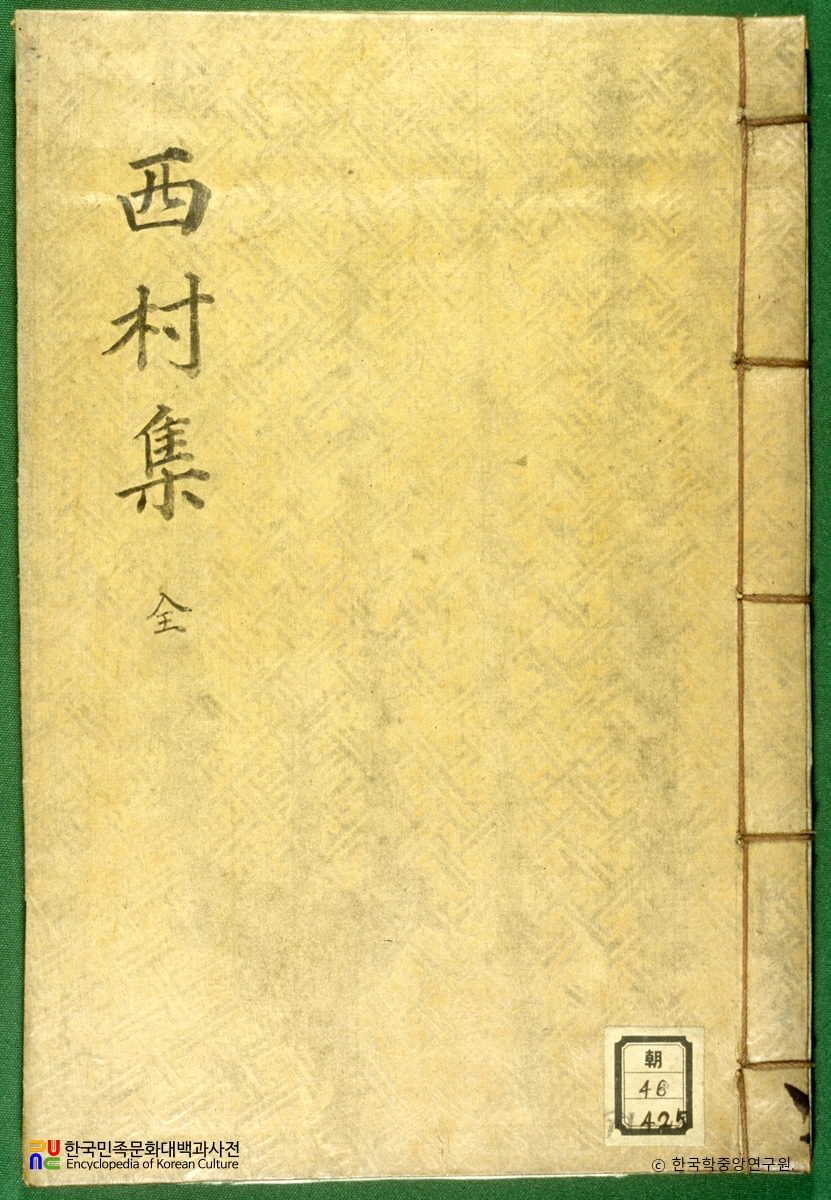 西村集 全
朝
46
425
한국민족문화대백과사전
Encyclopedia of Korean Culture
© 한국학중앙연구원